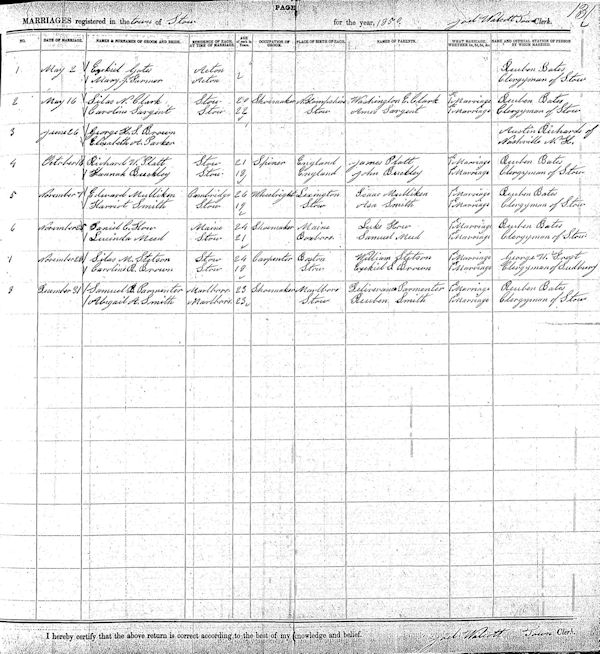 PAGE
MARRIAGES registered in the town of Stow for the year, 1850, Joel Walcott Town Clerk.
NO. DATE OF MARRIAGE. NAMES & SURNAMES OF GROOM AND BRIDE. RESIDENCE OF EACH, AT TIME OF MARRIAGE. AGE OCCUPATION OF GROOM. PLACE OF BIRTH OF EACH. NAMES OF PARENTS. WHAT MARRIAGE, NAME AND OFFICIAL STATION OF PERSON BY WHOM MARRIED.
1 May 2 Ezekiel Gates Acton Reuben Bates
Mary J. Acton Clergyman of Stow
2 May 16 Silas N. Clark Stow 20 Shoemaker N. Hampshire Washington C. Clark 1st Marriage Reuben Bates
Caroline Sargent Stow 22 Stow Amos Sargent 1st Marriage Clergyman of Stow
3 June 26 George H. S. Brown Austin Richards of
Elizabeth A. Parker Nashville N. H.
4 October 18 Richard W. Platt Stow 21 Spiner England James Platt 1st Marriage Reuben Bates
Hannah Buckley Stow 19 England John Buckley 1st Marriage Clergyman of Stow
5 November 7 Edward Mulliken Cambridge 26 Wheelright Lexington Isaac Mulliken 1st Marriage Reuben Bates
Harriot Smith Stow 19 Stow Asa Smith 1st Marriage Clergyman of Stow
6 November Daniel C. How Maine 24 Shoemaker Maine Luke How 1st Marriage Reuben Bates
Lucinda Mead Stow 21 Boxboro Samuel Mead 1st Marriage Clergyman of Stow
7 November 28 Silas M. Stetson Stow 24 Carpenter William Stetson 1st Marriage George H. Frost
Caroline R. Brown Stow 19 Stow Ezekiel Brown 1st Marriage Clergyman of Sudbury
8 December 31 Samuel B. Parmenter Marlboro 23 Shoemaker Marlboro Deliverance Parmenter 1st Marriage Reuben Bates
Abigail A. Smith Marlboro 23 Stow Reuben Smith 1st Marriage Clergyman of Stow
I hereby certify that the above return is correct according to the best of my knowledge and belief. Joel Walcott Town Clerk.